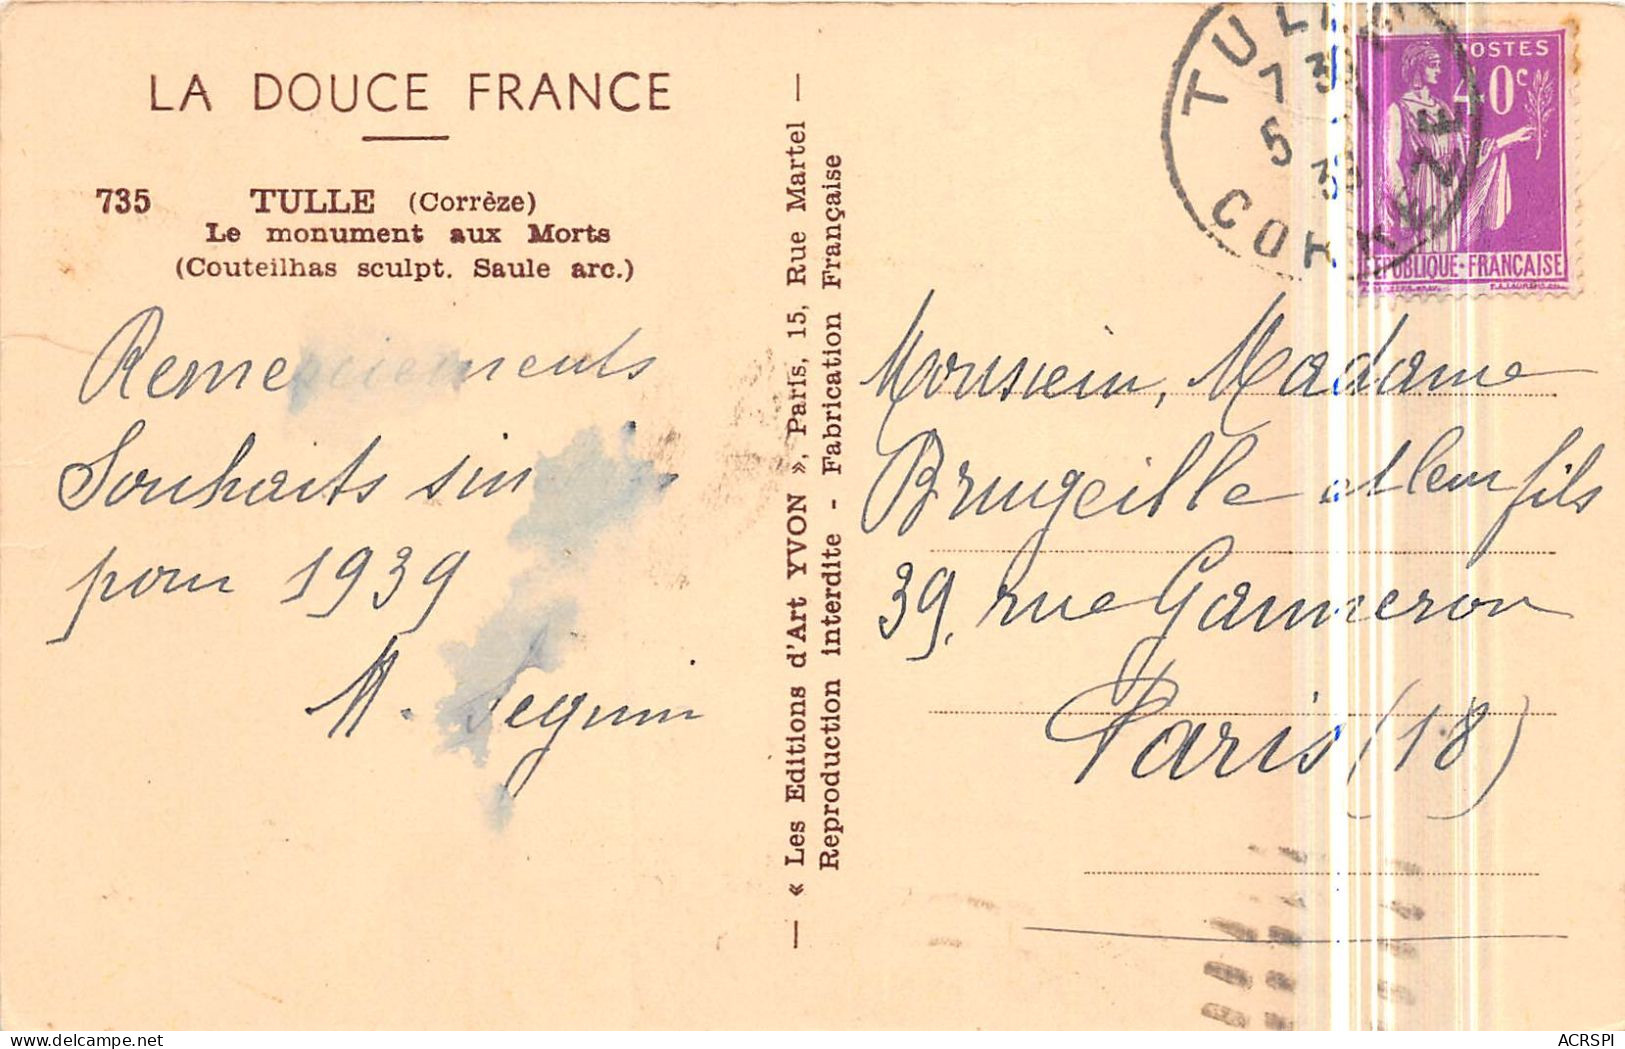 LA DOUCE FRANCE
735 TULLE (Corrèze)
Le monument aux Morts
(Couteilhas sculpt. Saule arc.)
Remerciements
Souhaits
pour 1939
M. Seguin
— « Les Editions d'Art YVON », Paris, 15, Rue Martel —
Reproduction interdite - Fabrication Française
TULLE
7 30
5 1
39
CORREZE
POSTES
40c
REPUBLIQUE-FRANÇAISE
Monsieur, Madame
Brugeille et leur fils
39, rue Ganneron
Paris (18)
ACRSPI